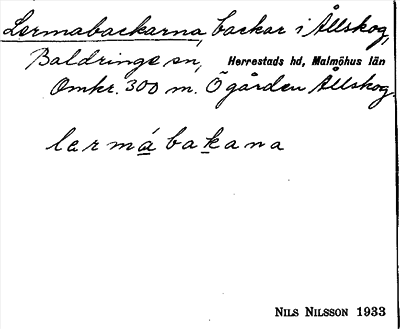 Lermabackarna, backar i Ållskog,
Baldringe sn, Herrestads hd, Malmöhus län
Omkr. 300 m. Ö gården Ållskog.
lermábakana
NILS NILSSON 1933